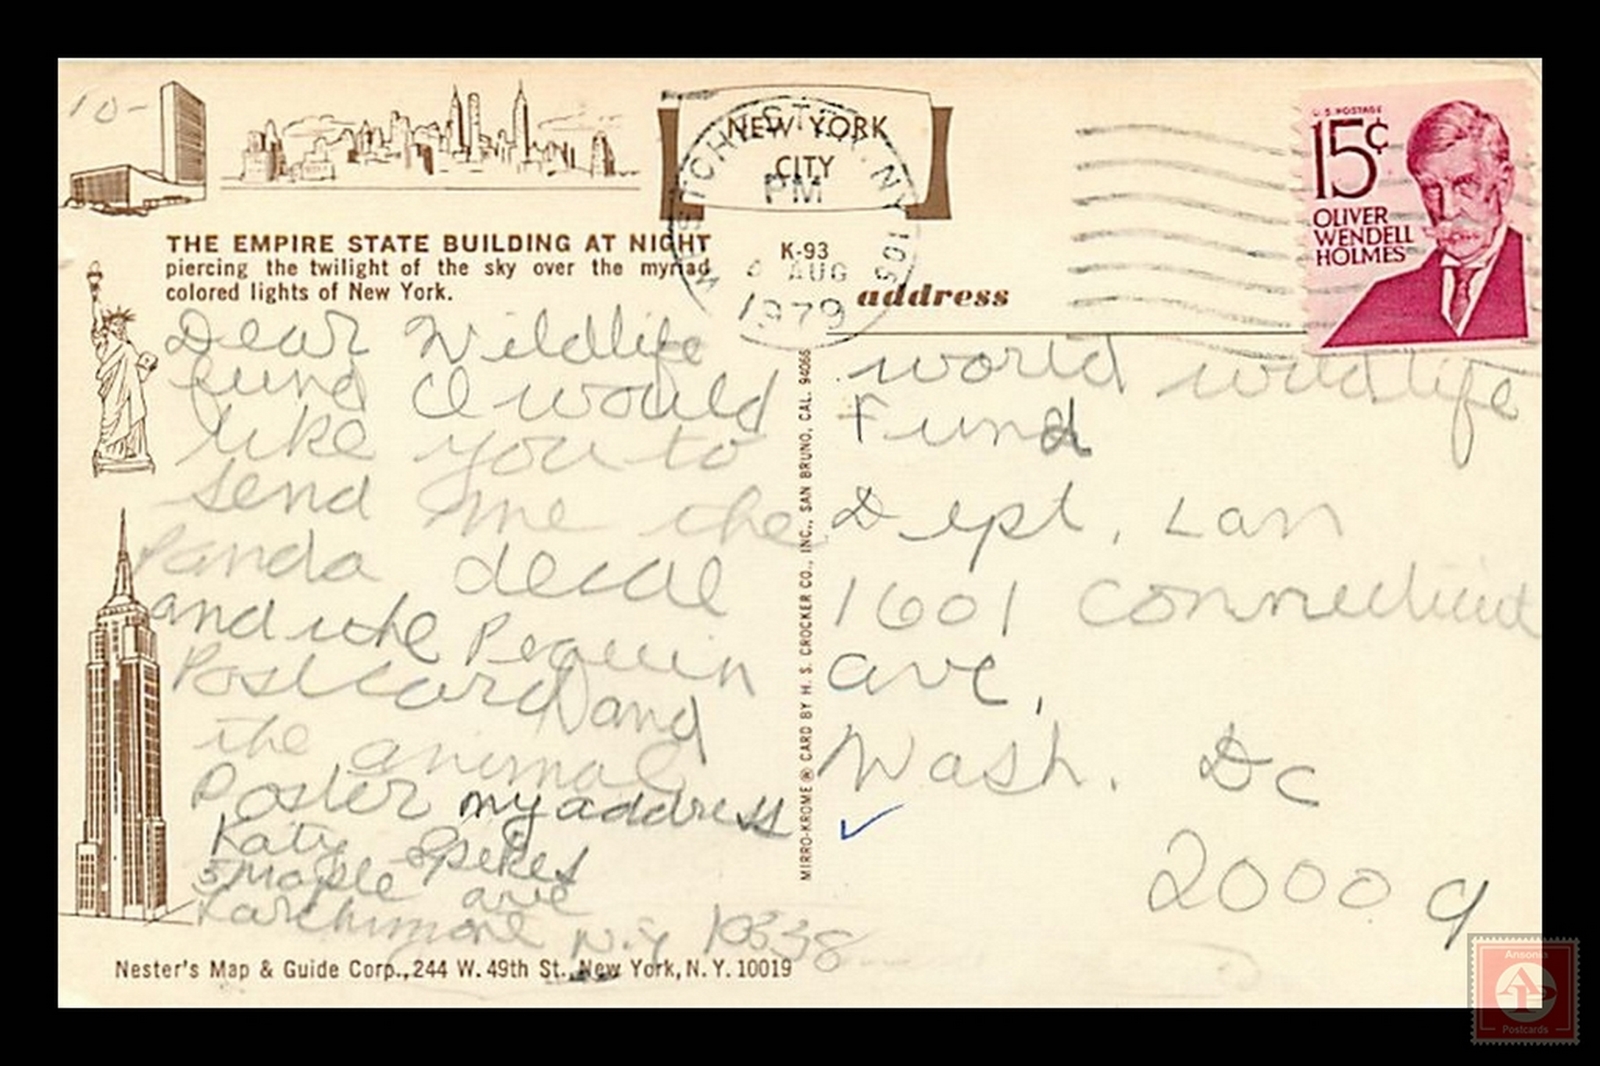 10-
NEW YORK
CITY
THE EMPIRE STATE BUILDING AT NIGHT
piercing the twilight of the sky over the myriad
colored lights of New York.
K-93
address
WESTCHESTER, NY 105
PM
AUG
1979
U.S. POSTAGE
15¢
OLIVER
WENDELL
HOLMES
Dear Wildlife
fund I would
like you to
send me the
Panda decal
and the Peguin
Postcard and
the animal
Poster my address
Katy Spikes
5 Maple ave
Larchmont N.Y 10538
world wildlife
Fund
Dept, Lan
1601 Connecticut
ave,
Wash. Dc
20009
MIRRO-KROME® CARD BY H. S. CROCKER CO., INC., SAN BRUNO, CAL. 94066
Nester's Map & Guide Corp., 244 W. 49th St., New York, N. Y. 10019
Ansonia
AP
Postcards